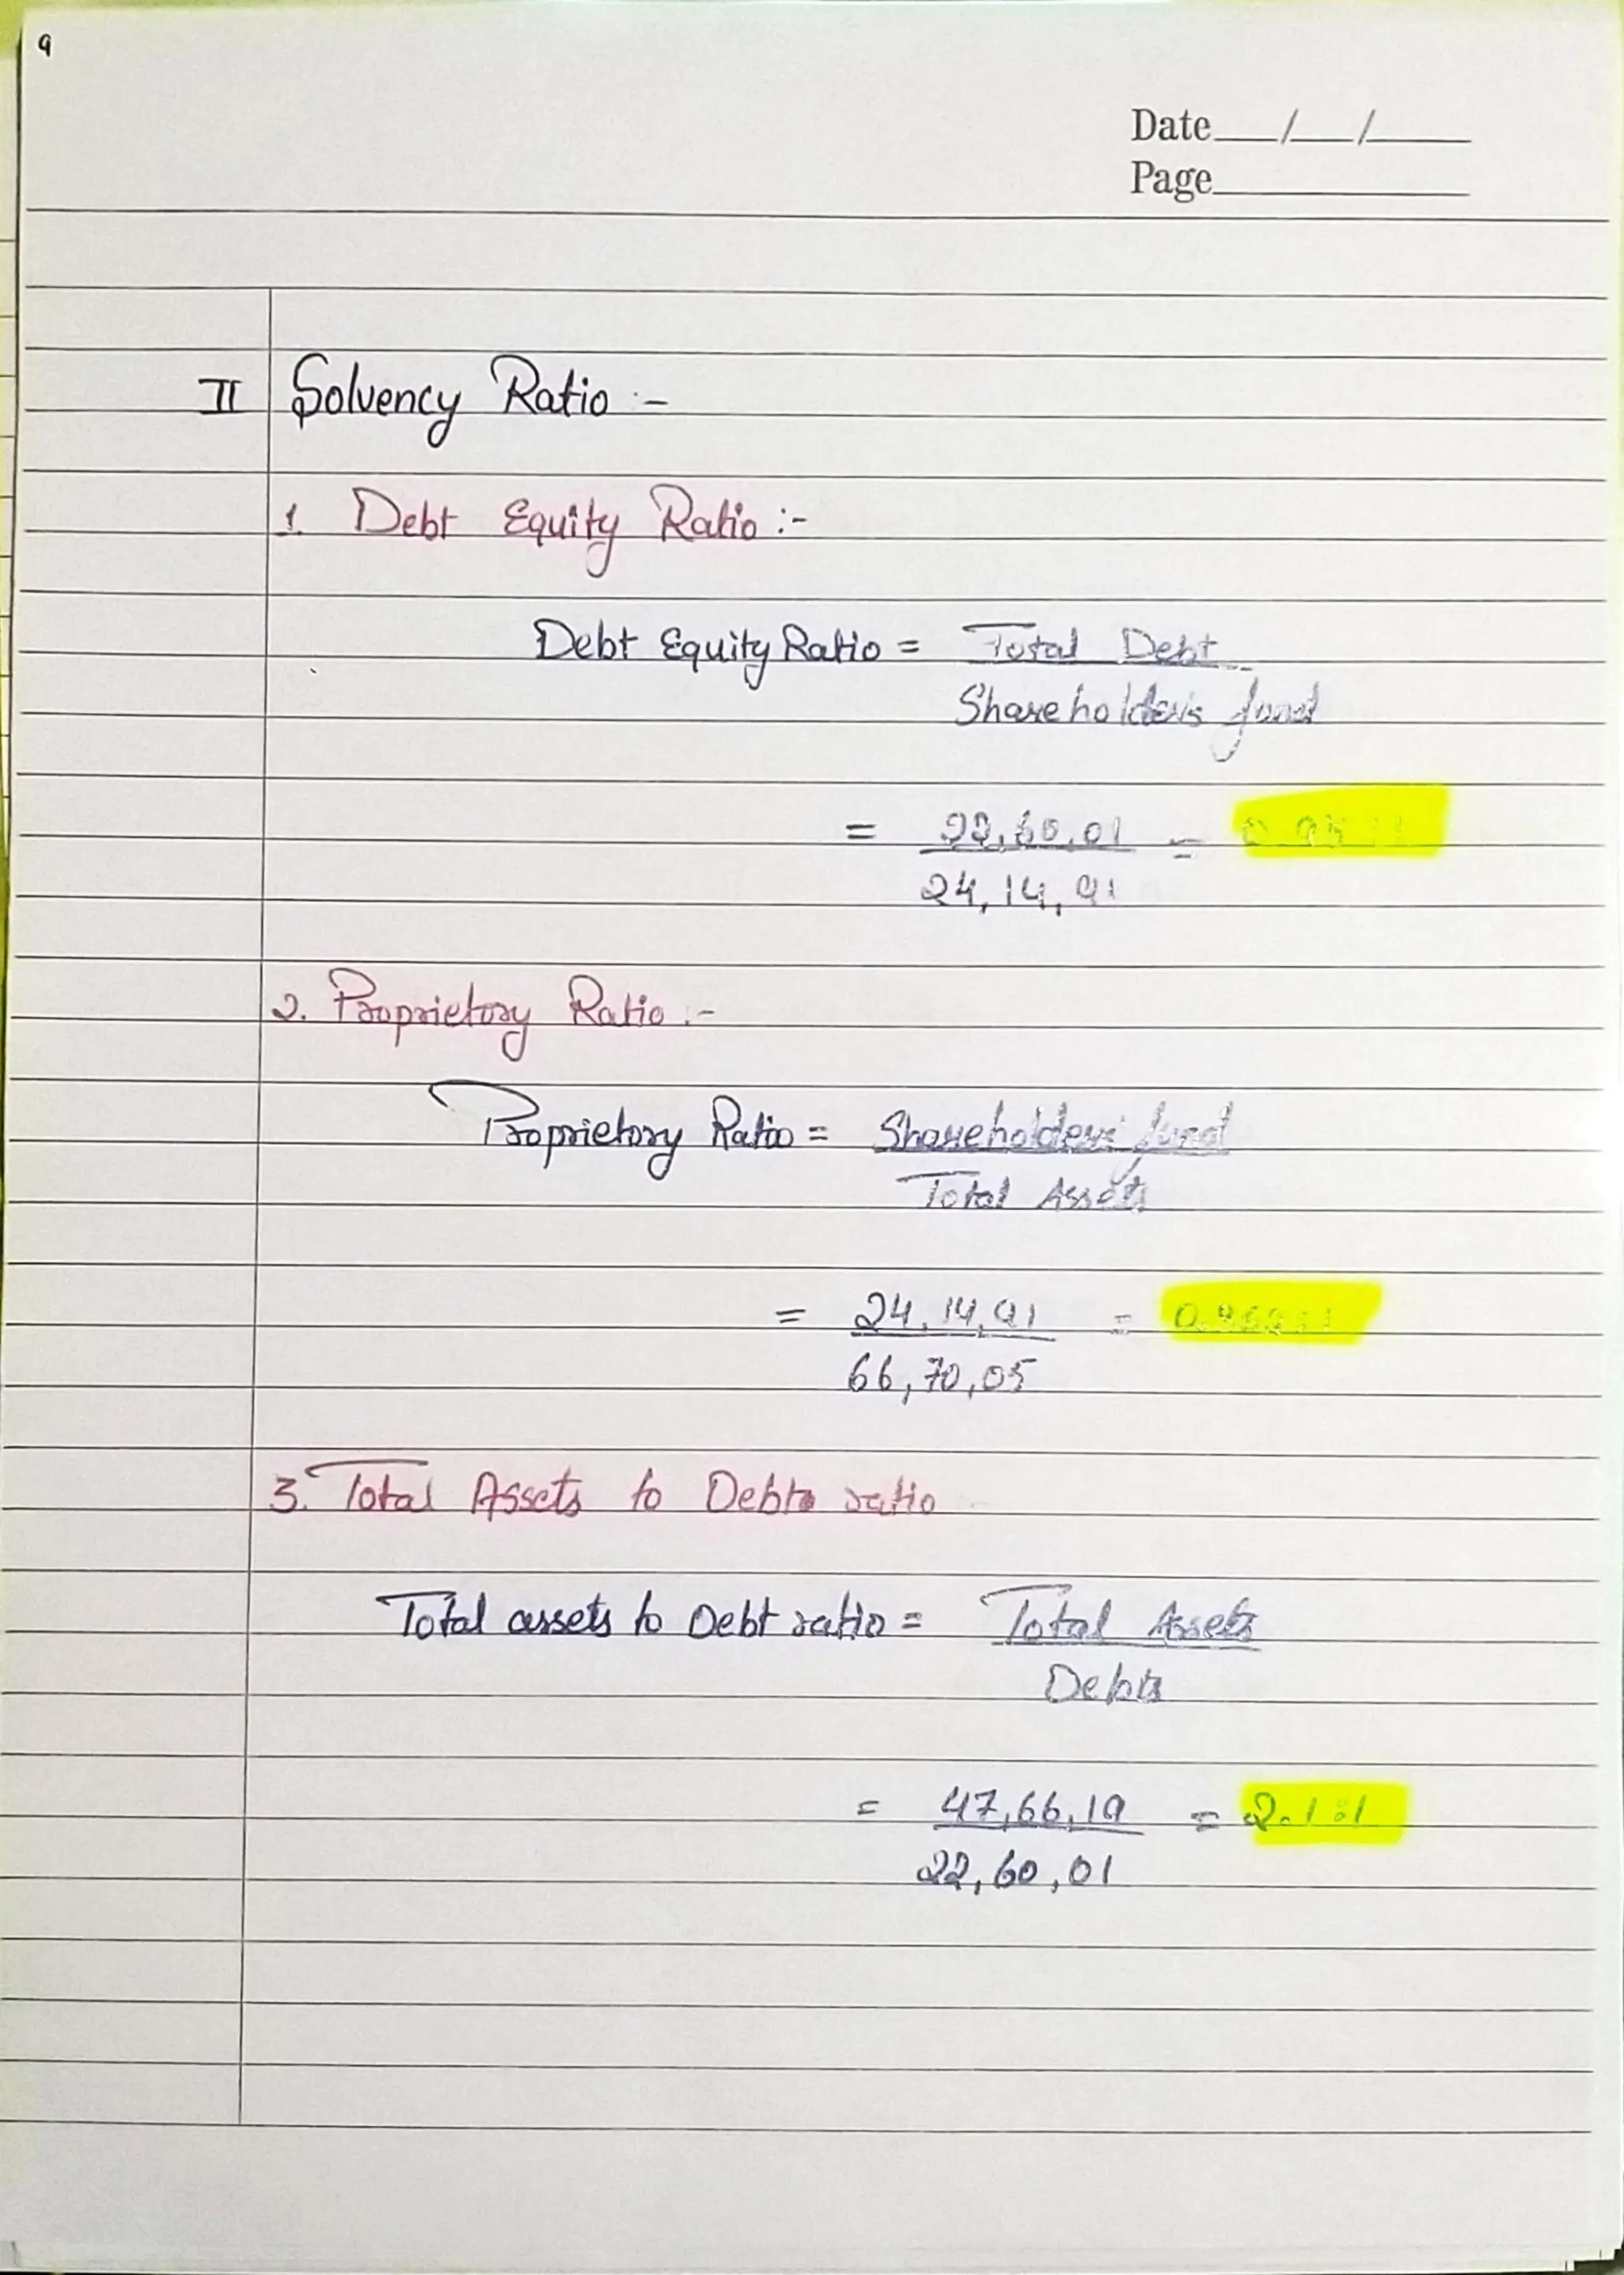 9
Date___/___/_____
Page____________
II Solvency Ratio :-
1. Debt Equity Ratio :-
Debt Equity Ratio = Total Debt
Shareholders fund
= 22,60,01 =
24,14,91
2. Proprietory Ratio :-
Proprietory Ratio = Shareholders fund
Total Assets
= 24,14,91 =
66,70,05
3. Total Assets to Debts ratio
Total assets to Debt ratio = Total Assets
Debts
= 47,66,19 = 2.1:1
22,60,01